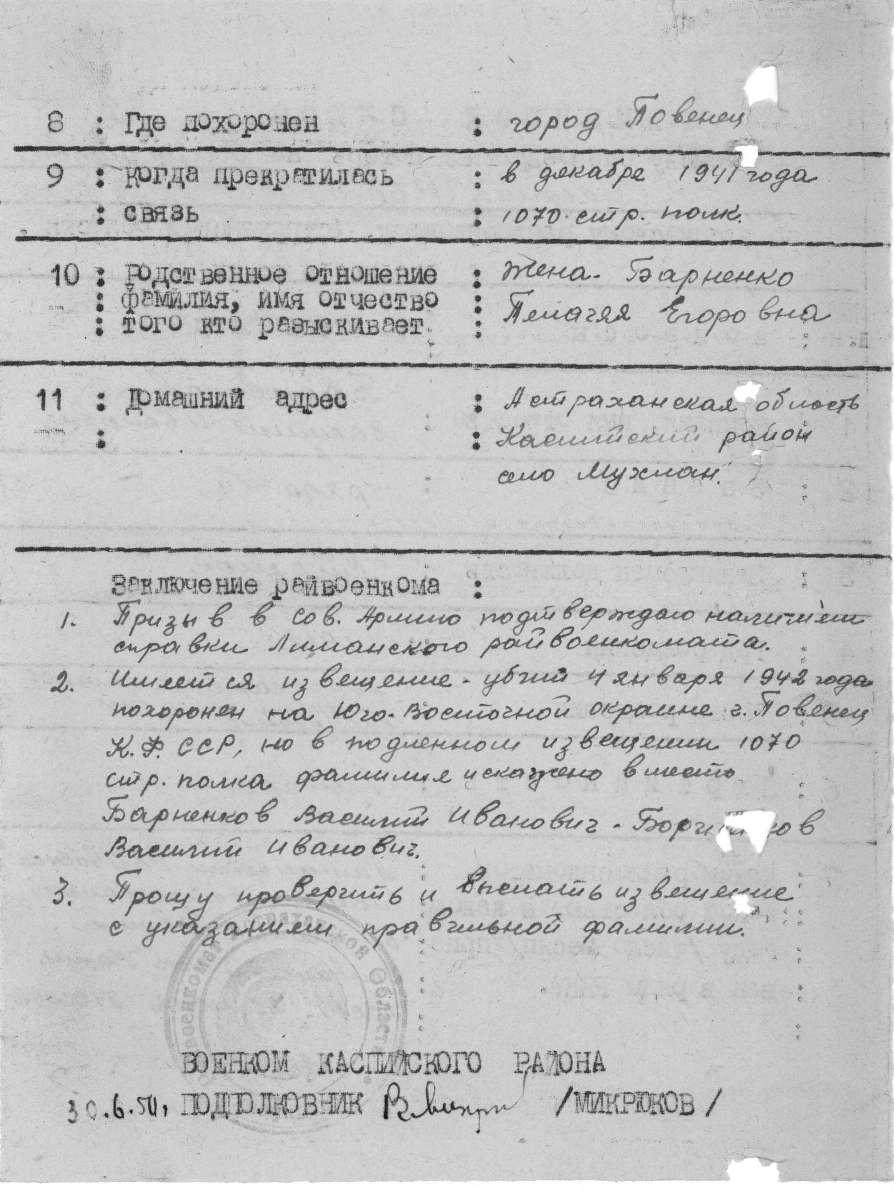 8 : Где похоронен : город Повенец
9 : когда прекратилась : в декабре 1941 года
: связь : 1070 стр. полк.
10 : родственное отношение : жена. Барненко
: фамилия, имя отчество : Пелагея Егоровна
: того кто разыскивает :
11 : Домашний адрес : Астраханская область
: : Каспийский район
село
Заключение райвоенкома :
1. Призыв в Сов. Армию подтверждаю наличием
справки Лиманского райвоенкомата.
2. Имеется извещение - убит 4 января 1942 года
похоронен на Юго-Восточной окраине г. Повенец
К.Ф. ССР, но в подленном извещении 1070
стр. полка фамилия искажено вместо
Барненков Василий Иванович -
Василий Иванович.
3. Прошу проверить и выслать извещение
с указанием правильной фамилии.
ВОЕНКОМ КАСПИЙСКОГО РАЙОНА
30.6.50, ПОДПОЛКОВНИК /МИКРЮКОВ/